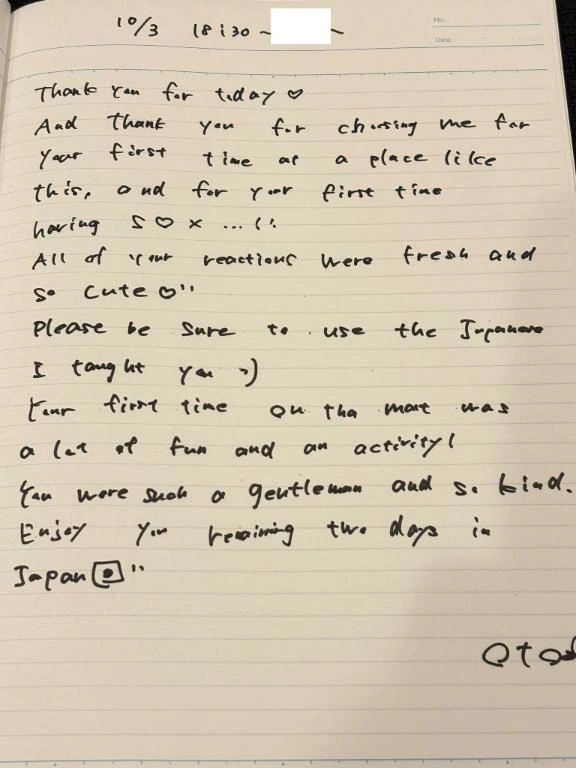 10/3 18:30~ ~
No.
Date
Thank you for today ♡
And thank you for choosing me for
your first time at a place like
this, and for your first time
having S♡x ...!!
All of your reactions were fresh and
so cute ♡"
Please be sure to use the Japanese
I taught you :)
Your first time on tha mat was
a lot of fun and an activity!
You were such a gentleman and so kind.
Enjoy you remaining two days in
Japan "